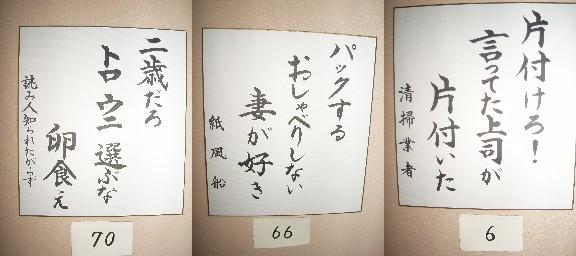 二歳だろ
トロ ウニ 選ぶな
卵食え
詠み人知られたがらず
70
パックする
おしゃべりしない
妻が好き
紙風船
66
片付けろ!
言ってた上司が
片付いた
清掃業者
6